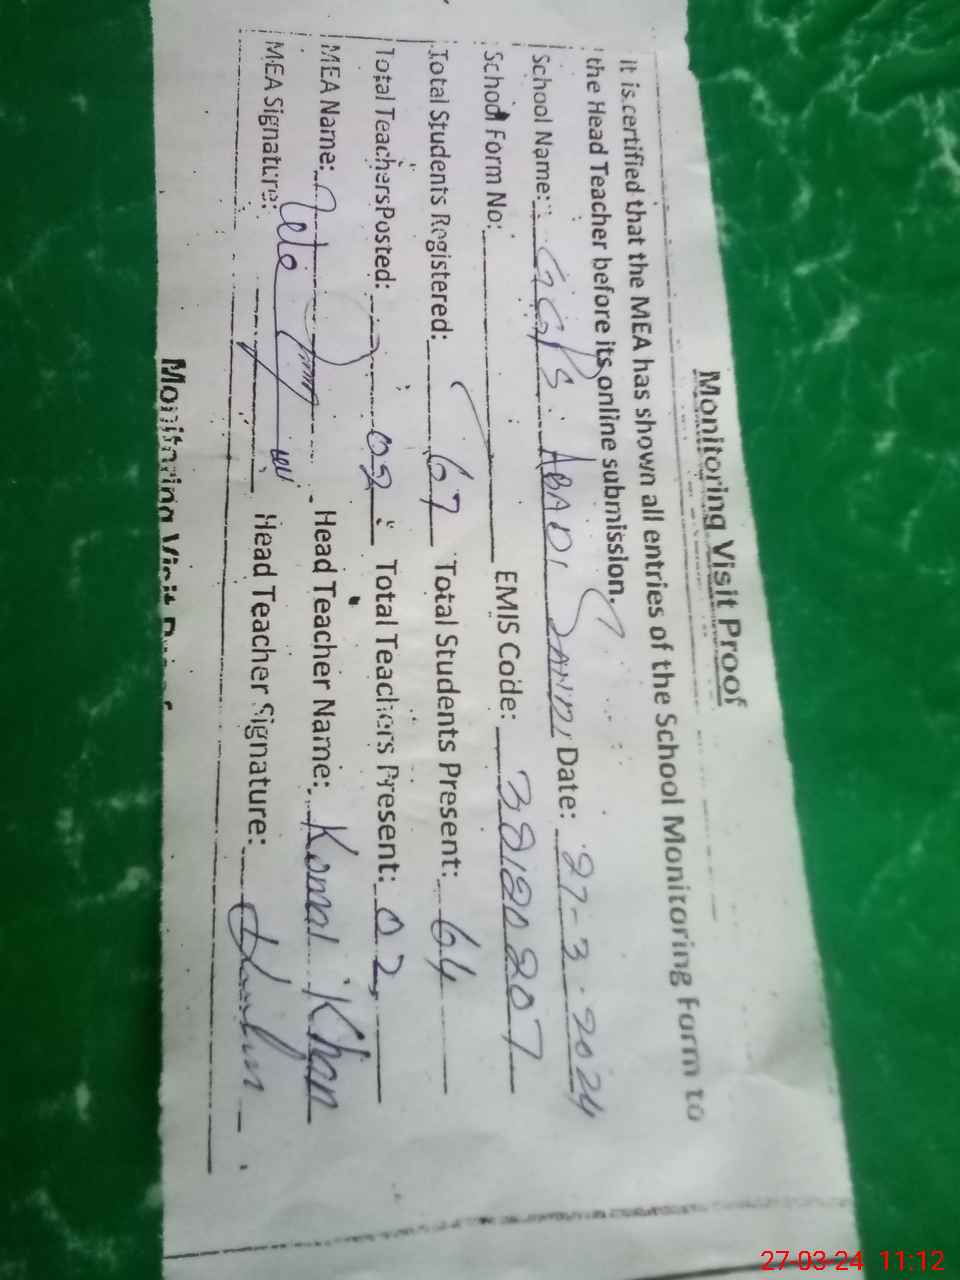 Monitoring Visit Proof
It is certified that the MEA has shown all entries of the School Monitoring Form to
the Head Teacher before its online submission.
School Name: GGPS. ABADI Date: 27-3-2024
School Form No: EMIS Code: 38120207
Total Students Registered: 67 Total Students Present: 64
Total Teachers Posted: 02 Total Teachers Present: 02
MEA Name: Head Teacher Name: Komal Khan
MEA Signature: Head Teacher Signature:
Monitoring Visit
27-03-24 11:12